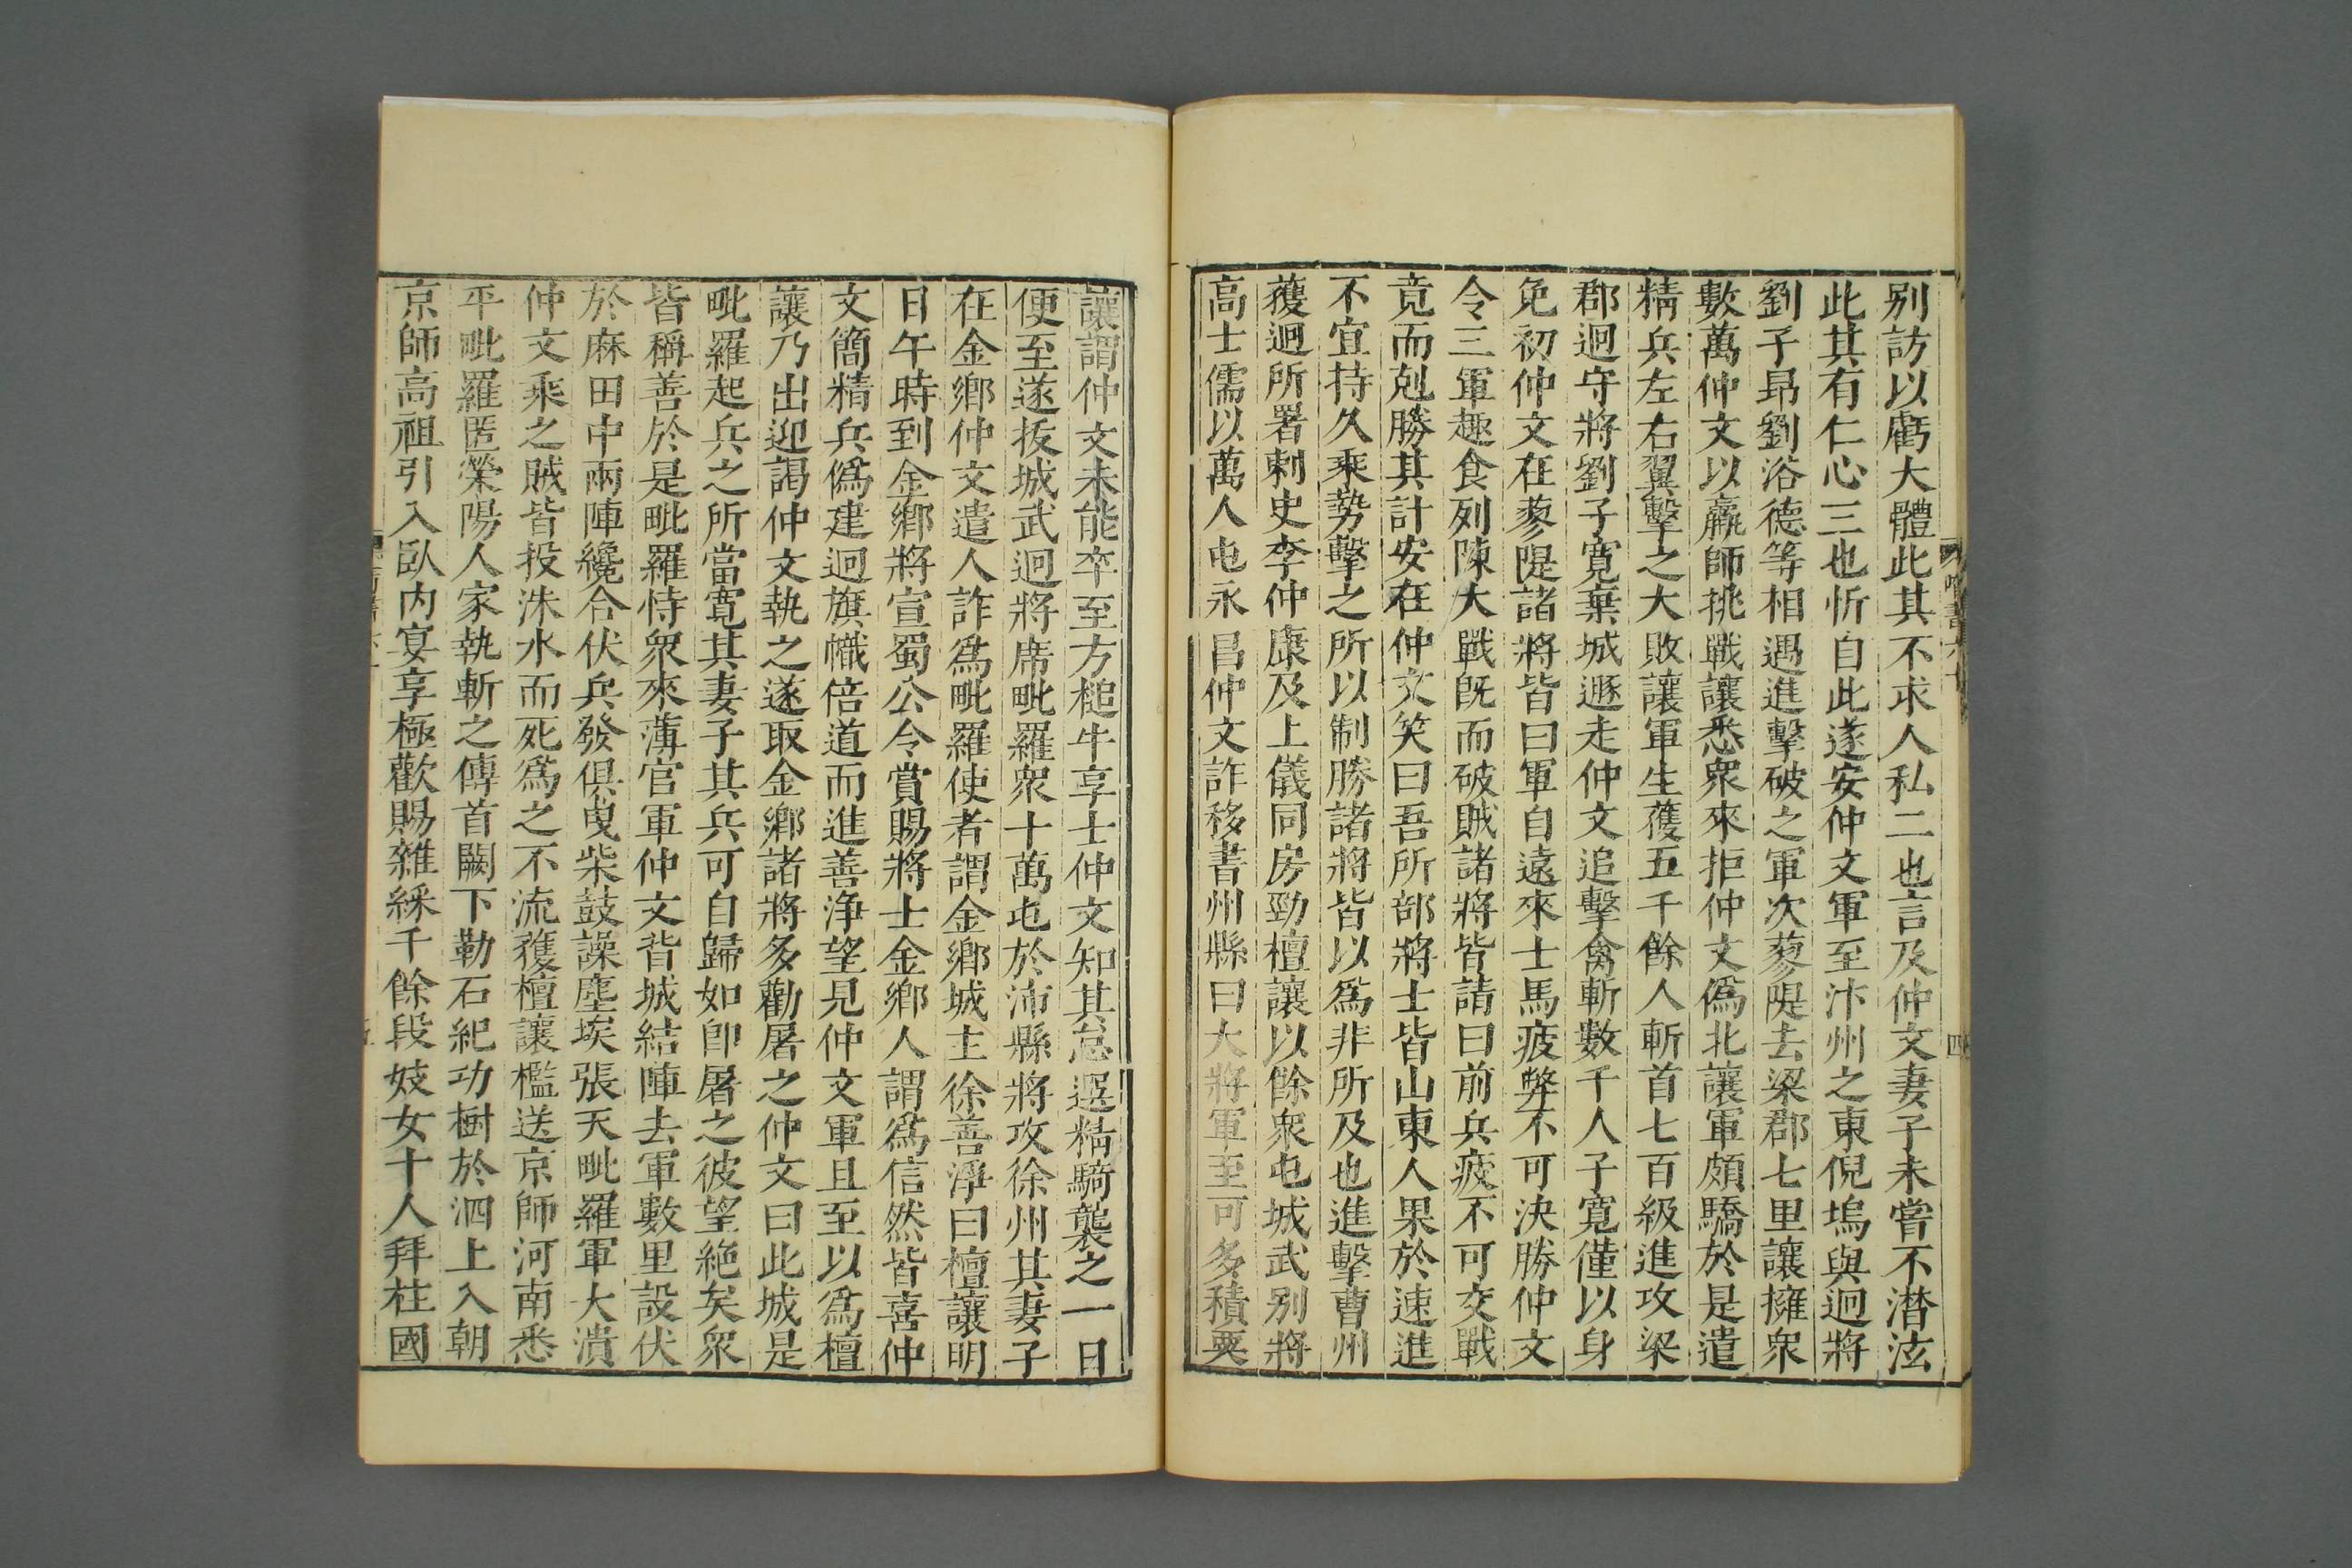 别訪以虧大體此其不求人私二也言及仲文妻子未嘗不潸泫
此其有仁心三也忻自此遂安仲文軍至汴州之東倪塢與迥將
劉子昂劉浴德等相遇進擊破之軍次蓼隄去梁郡七里讓擁衆
數萬仲文以羸師挑戰讓悉衆來拒仲文僞北讓軍頗驕於是遣
精兵左右翼擊之大敗讓軍生獲五千餘人斬首七百級進攻梁
郡迥守將劉子寛棄城遯走仲文追擊禽斬數千人子寛僅以身
免初仲文在蓼隄諸將皆曰軍自遠來士馬疲弊不可決勝仲文
令三軍趣食列陳大戰旣而破賊諸將皆請曰前兵疲不可交戰
竟而剋勝其計安在仲文笑曰吾所部將士皆山東人果於速進
不宜持久乘勢擊之所以制勝諸將皆以爲非所及也進擊曹州
獲迥所署刺史李仲康及上儀同房勁檀讓以餘衆屯城武别將
高士儒以萬人屯永昌仲文詐移書州縣曰大將軍至可多積粟
讓謂仲文未能卒至方槌牛享士仲文知其怠選精騎襲之一日
便至遂拔城武迥將席毗羅衆十萬屯於沛縣將攻徐州其妻子
在金鄉仲文遣人詐爲毗羅使者謂金鄉城主徐善淨曰檀讓明
日午時到金鄉將宣蜀公令賞賜將士金鄉人謂爲信然皆喜仲
文簡精兵僞建迥旗幟倍道而進善净望見仲文軍且至以爲檀
讓乃出迎謁仲文執之遂取金鄉諸將多勸屠之仲文曰此城是
毗羅起兵之所當寛其妻子其兵可自歸如卽屠之彼望絶矣衆
皆稱善於是毗羅恃衆來薄官軍仲文背城結陣去軍數里設伏
於麻田中兩陣纔合伏兵發俱曳柴鼓譟塵埃張天毗羅軍大潰
仲文乘之賊皆投洙水而死爲之不流獲檀讓檻送京師河南悉
平毗羅匿滎陽人家執斬之傳首闕下勒石紀功樹於泗上入朝
京師高祖引入臥内宴享極歡賜雜綵千餘段妓女十人拜柱國